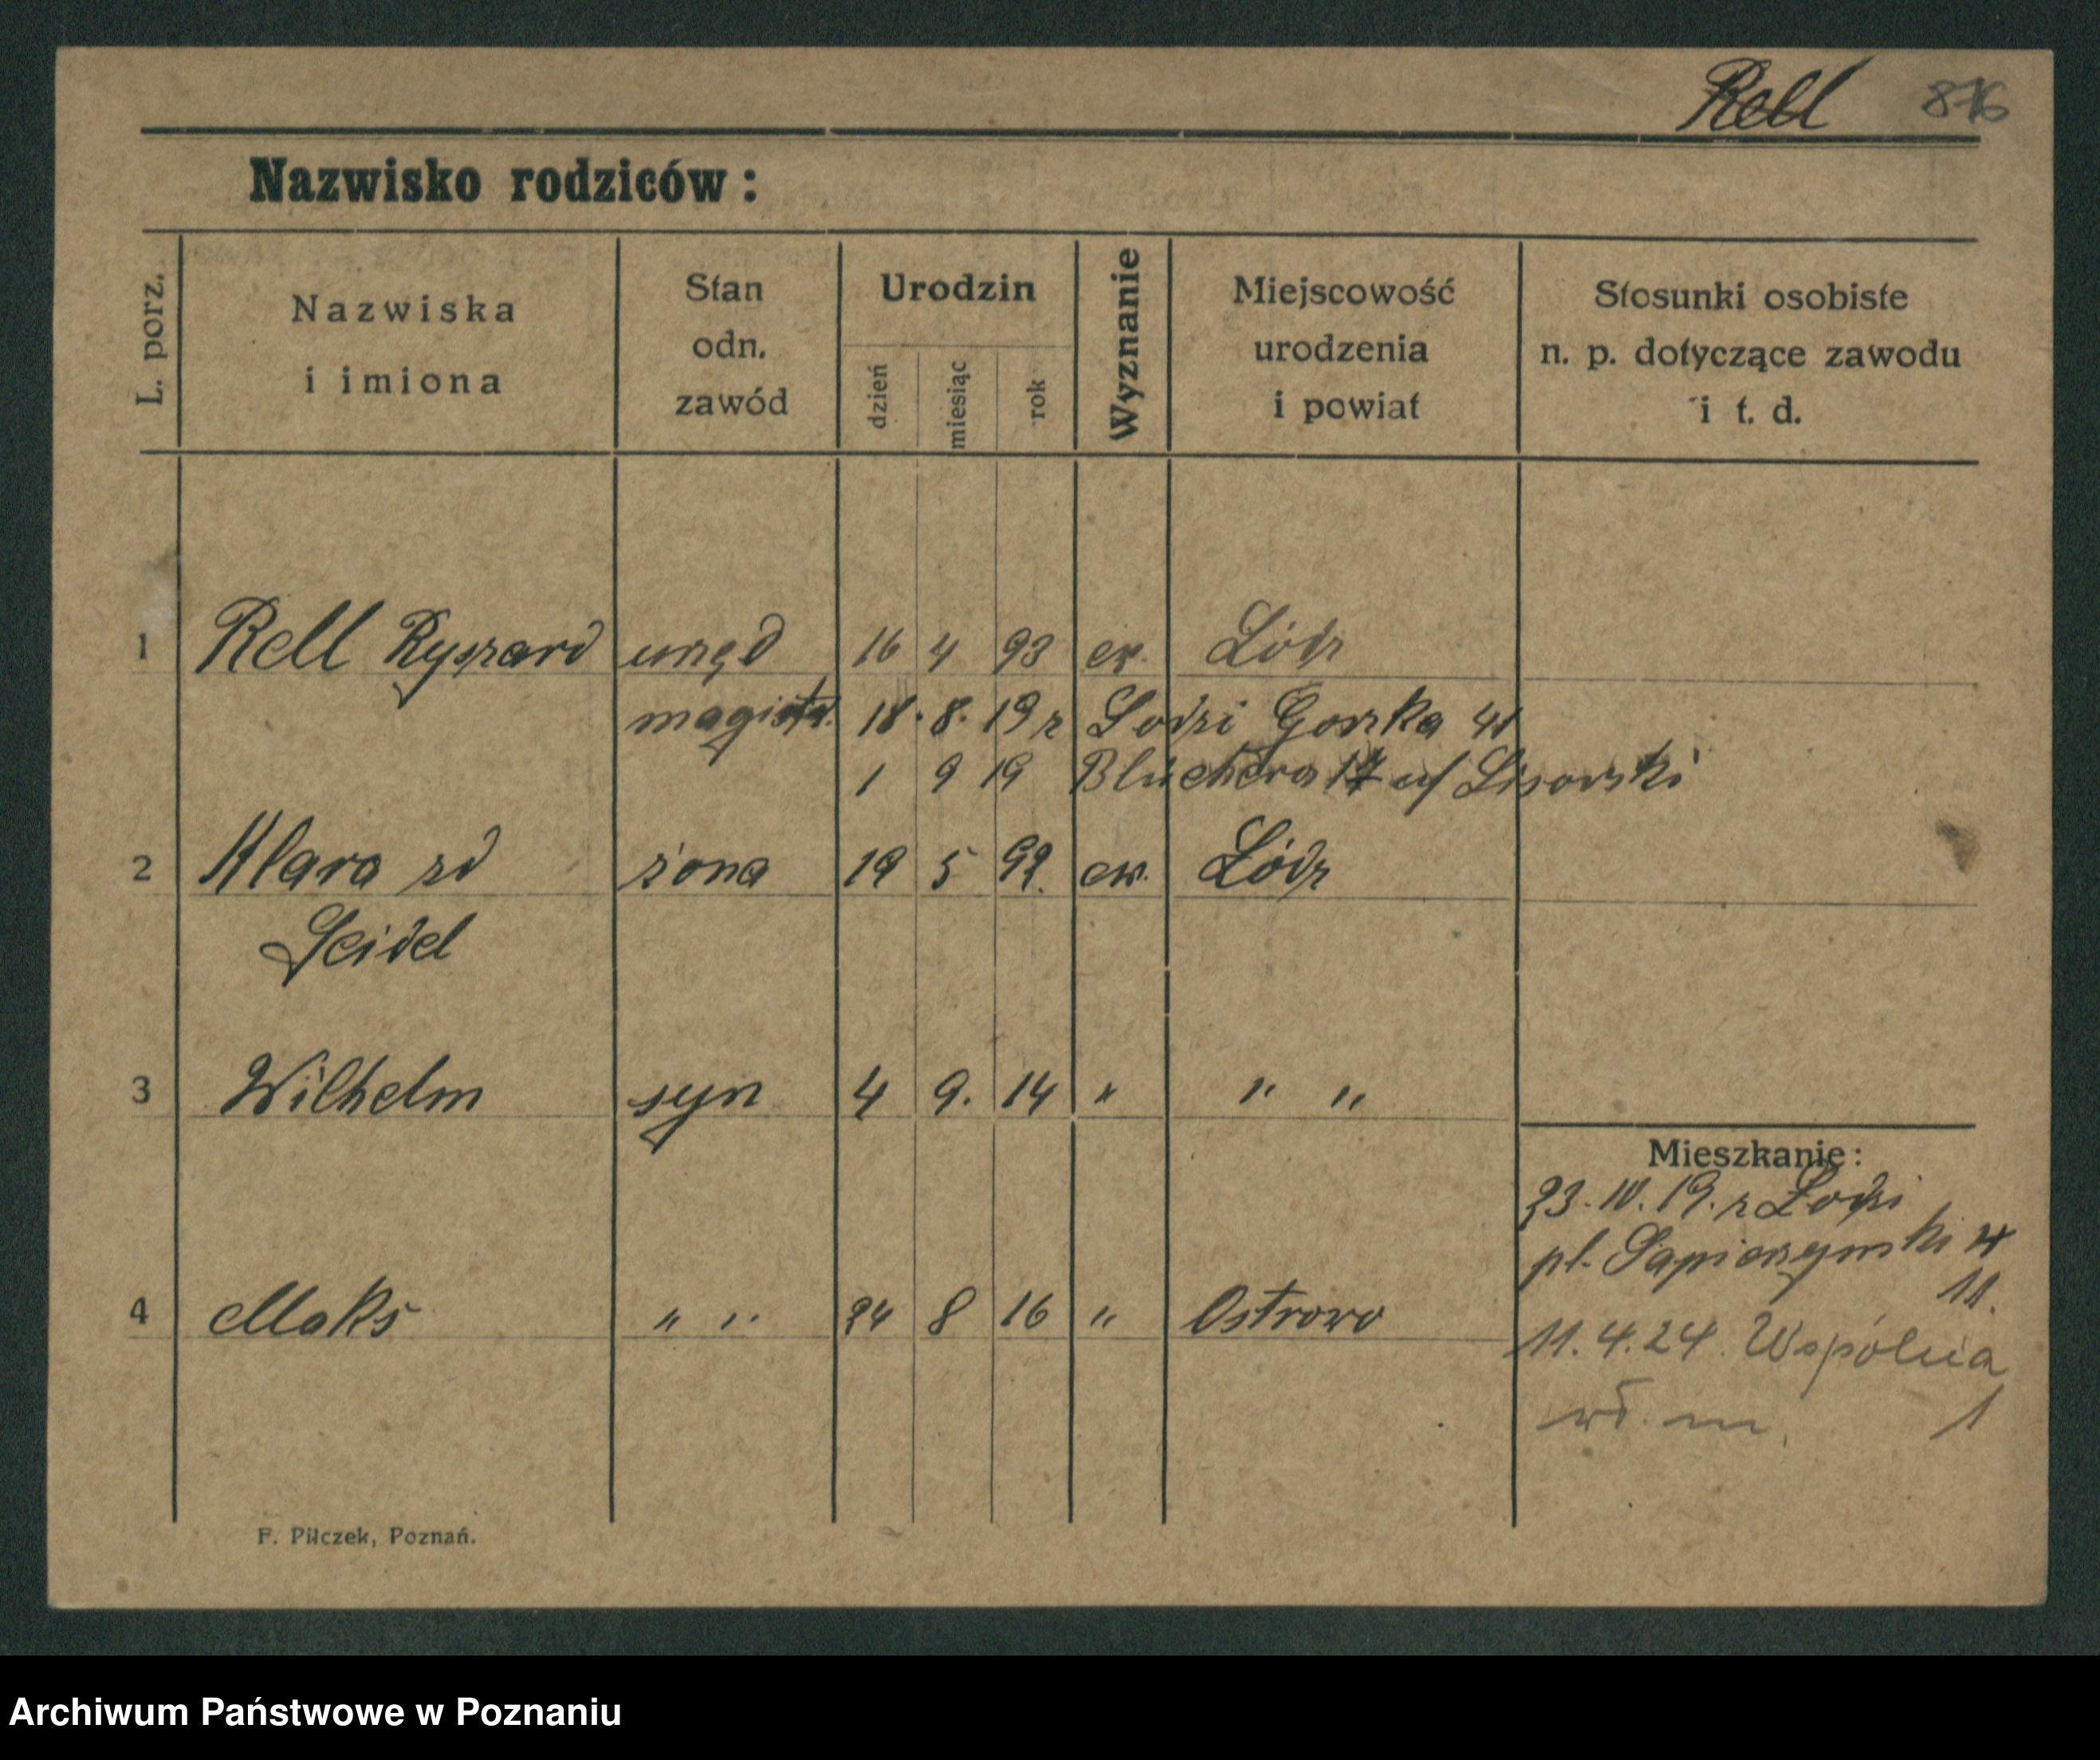 Rell 876
Nazwisko rodziców:
L. porz.
Nazwiska i imiona
Stan odn. zawód
Urodzin
dzień miesiąc rok
Wyznanie
Miejscowość urodzenia i powiat
Stosunki osobiste n. p. dotyczące zawodu i t. d.
1 Rell Ryszard urzęd 16 4 93 ew. Łódz
magistr. 18. 8. 19 z Lodzi 41
1 9 19 Blüchera u/ Lisowski
2 Klara zd żona 19 5 92. ew. Łódz
Seidel
3 Wilhelm syn 4 9. 14 " " "
Mieszkanie:
23. 10. 19. z Łodzi
pl. Sapieżyński
11.
4 Maks " " 24 8 16 " Ostrowo
11. 4. 24. Wspólna
wł. m. 1
F. Pilczek, Poznań.
Archiwum Państwowe w Poznaniu